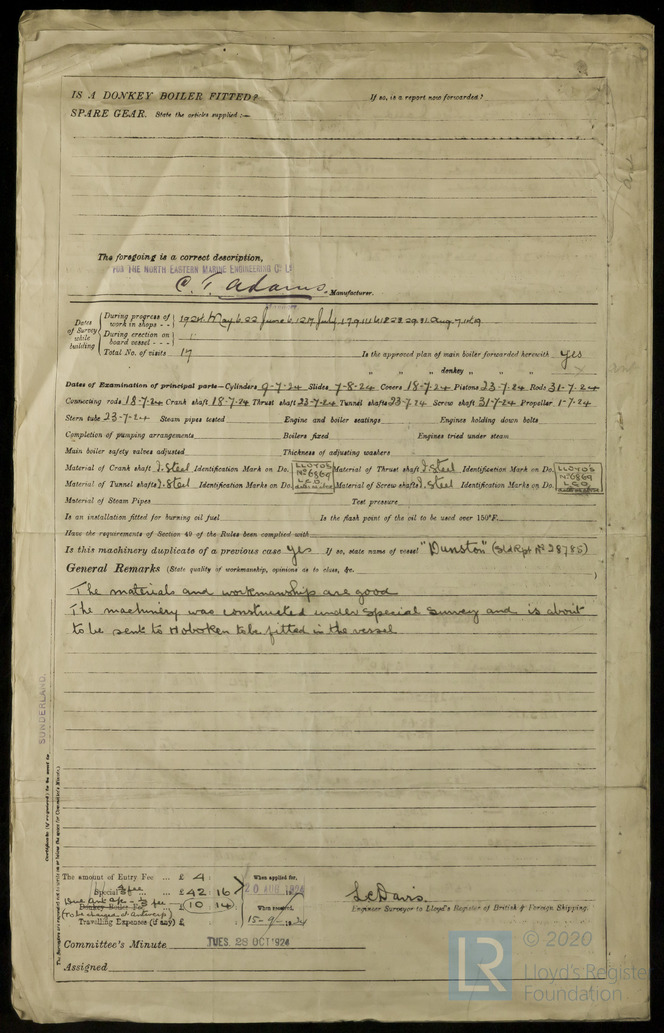 IS A DONKEY BOILER FITTED? If so, is a report now forwarded?
SPARE GEAR. State the articles supplied:—
The foregoing is a correct description,
FOR THE NORTH EASTERN MARINE ENGINEERING Co Ld
C. T. Adams, Manufacturer.
Dates of Survey while building
During progress of work in shops - - 1924. May 6. 22 June 6. 127 July
During erection on board vessel - - -
Total No. of visits 17 Is the approved plan of main boiler forwarded herewith yes
" " " donkey " " "
Dates of Examination of principal parts—Cylinders 9-7-24 Slides 7-8-24 Covers 18-7-24 Pistons 23-7-24 Rods 31-7-24
Connecting rods 18-7-24 Crank shaft 18-7-24 Thrust shaft 23-7-24 Tunnel shafts 23-7-24 Screw shaft 31-7-24 Propeller 1-7-24
Stern tube 23-7-24 Steam pipes tested Engine and boiler seatings Engines holding down bolts
Completion of pumping arrangements Boilers fixed Engines tried under steam
Main boiler safety valves adjusted Thickness of adjusting washers
Material of Crank shaft I. Steel Identification Mark on Do. LLOYD'S No 6869 L.C.D. Material of Thrust shaft I. Steel Identification Mark on Do. LLOYD'S No 6869 L.C.D.
Material of Tunnel shafts I. Steel Identification Marks on Do. Material of Screw shafts I. Steel Identification Marks on Do.
Material of Steam Pipes Test pressure
Is an installation fitted for burning oil fuel Is the flash point of the oil to be used over 150°F.
Have the requirements of Section 49 of the Rules been complied with
Is this machinery duplicate of a previous case yes If so, state name of vessel "Dunston" (Sld Rpt No 28785)
General Remarks (State quality of workmanship, opinions as to class, &c.
The materials and workmanship are good
The machinery was constructed under Special Survey and is about
to be sent to Hoboken to be fitted in the vessel
SUNDERLAND.
Certificate (if required) to be sent to
The amount of Entry Fee ... £ 4 : When applied for,
Special ... £ 42 : 16 20 AUG 1924
Donkey Boiler Fee ... £ 10 : 14 When received,
(To be charged at Antwerp)
Travelling Expenses (if any) £ 15-9-1924
L. C. Davis.
Engineer Surveyor to Lloyd's Register of British & Foreign Shipping.
Committee's Minute TUES. 28 OCT 1924
Assigned
LR © 2020
Lloyd's Register
Foundation